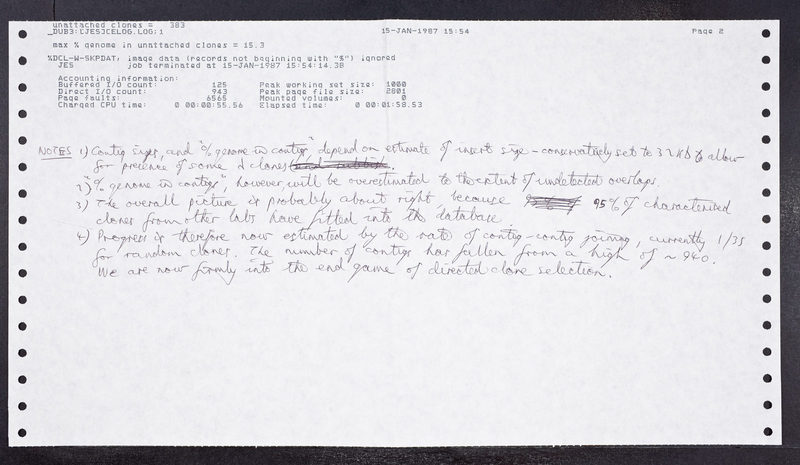 unattached clones = 383
_DUB3:[JES]CELOG.LOG;1 15-JAN-1987 15:54 Page 2
max % genome in unattached clones = 15.3
%DCL-W-SKPDAT, image data (records not beginning with "$") ignored
JES job terminated at 15-JAN-1987 15:54:14.38
Accounting information:
Buffered I/O count: 125 Peak working set size: 1000
Direct I/O count: 943 Peak page file size: 2801
Page faults: 6565 Mounted volumes: 0
Charged CPU time: 0 00:00:55.56 Elapsed time: 0 00:01:58.53
NOTES 1) Contig sizes, and "% genome in contigs" depend on estimate of insert size - conservatively set to 32 kb to allow
for presence of some λ clones
2) "% genome in contigs", however, will be overestimated to the extent of undetected overlaps.
3) The overall picture is probably about right, because 95% of characterised
clones from other labs have fitted into the database
4) Progress is therefore now estimated by the rate of contig-contig joining, currently 1/35
for random clones. The number of contigs has fallen from a high of ~ 940.
We are now firmly into the end game of directed clone selection.